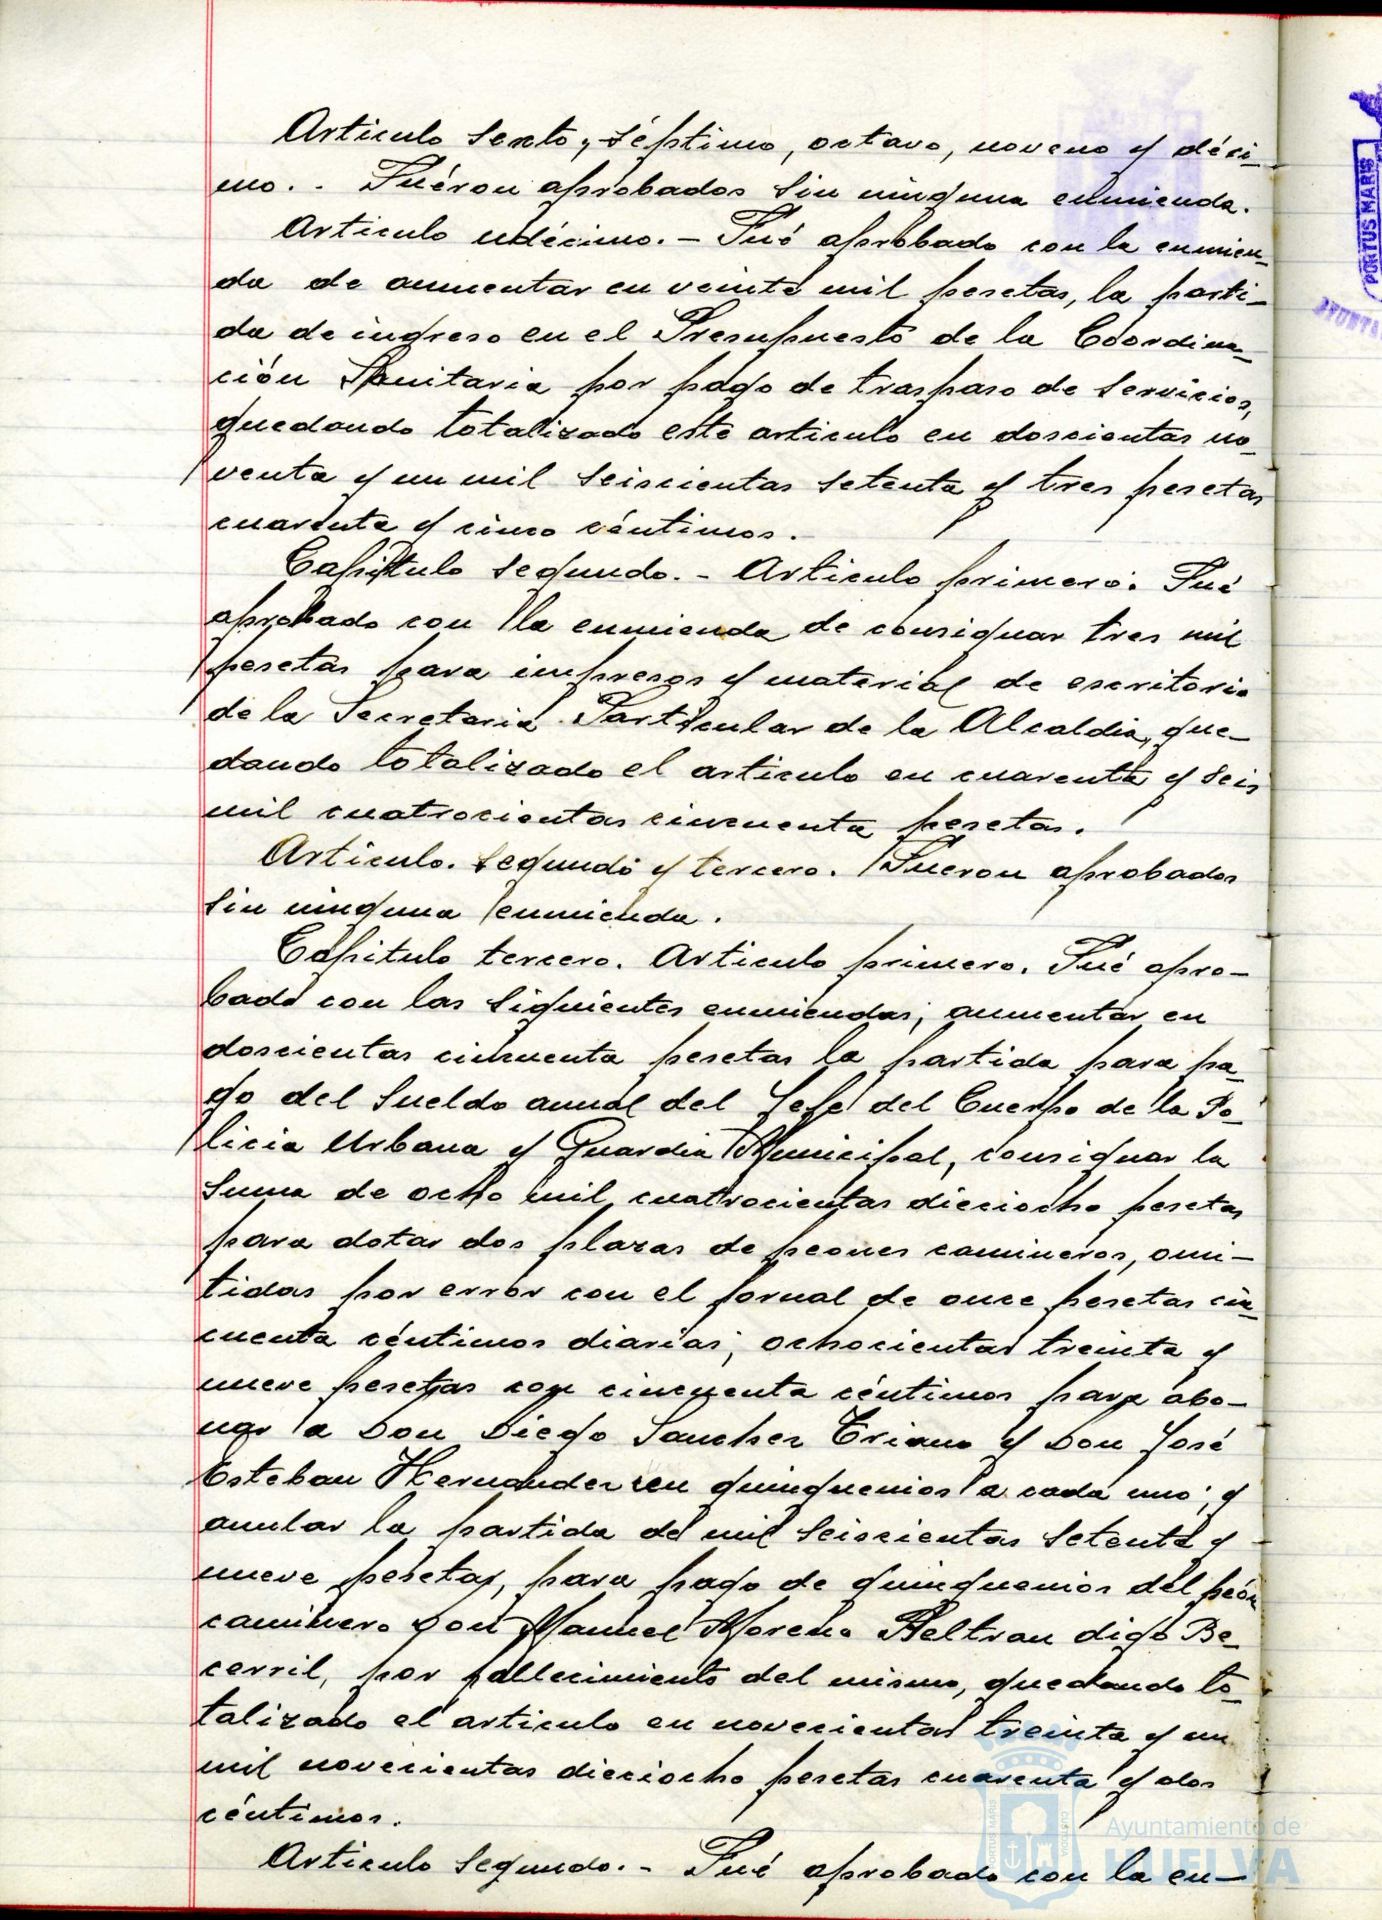 Articulo sexto, séptimo, octavo, noveno y déci-
mo. - Fuéron aprobados sin ninguna enmienda.
Articulo undécimo. - Fué aprobado con la enmien-
da de aumentar en veinte mil pesetas, la parti-
da de ingreso en el Presupuesto de la Coordina-
ción Sanitaria por pago de traspaso de servicios,
quedando totalizado este articulo en doscientas no-
venta y un mil seiscientas setenta y tres pesetas
cuarenta y cinco céntimos.
Capitulo segundo. - Articulo primero. Fué
aprobado con la enmienda de consignar tres mil
pesetas para impresos y material de escritorio
de la Secretaria Particular de la Alcaldia, que-
dando totalizado el articulo en cuarenta y seis
mil cuatrocientas cincuenta pesetas.
Articulo. segundo y tercero. Fueron aprobados
sin ninguna enmienda.
Capitulo tercero. Articulo primero. Fué apro-
bado con las siguientes enmiendas; aumentar en
doscientas cincuenta pesetas la partida para pa-
go del sueldo anual del Jefe del Cuerpo de la Po-
licia Urbana y Guardia Municipal, consignar la
suma de ocho mil cuatrocientas dieciocho pesetas
para dotar dos plazas de peones camineros, omi-
tidas por error con el jornal de once pesetas cin-
cuenta céntimos diarias; ochocientas treinta y
nueve pesetas con cincuenta céntimos para abo-
nar a Don Diego Sanchez Triano y Don José
Esteban Hernandez en quinquenios a cada uno; y
anular la partida de mil seiscientas setenta y
nueve pesetas, para pago de quinquenios del peón
caminero Don Manuel Moreno Beltran digo Be-
cerril, por fallecimiento del mismo, quedando to-
talizado el articulo en novecientas treinta y un
mil novecientas dieciocho pesetas cuarenta y dos
céntimos.
Articulo segundo. - Fué aprobado con la en-
PORTUS MARIS
Ayuntamiento de
HUELVA